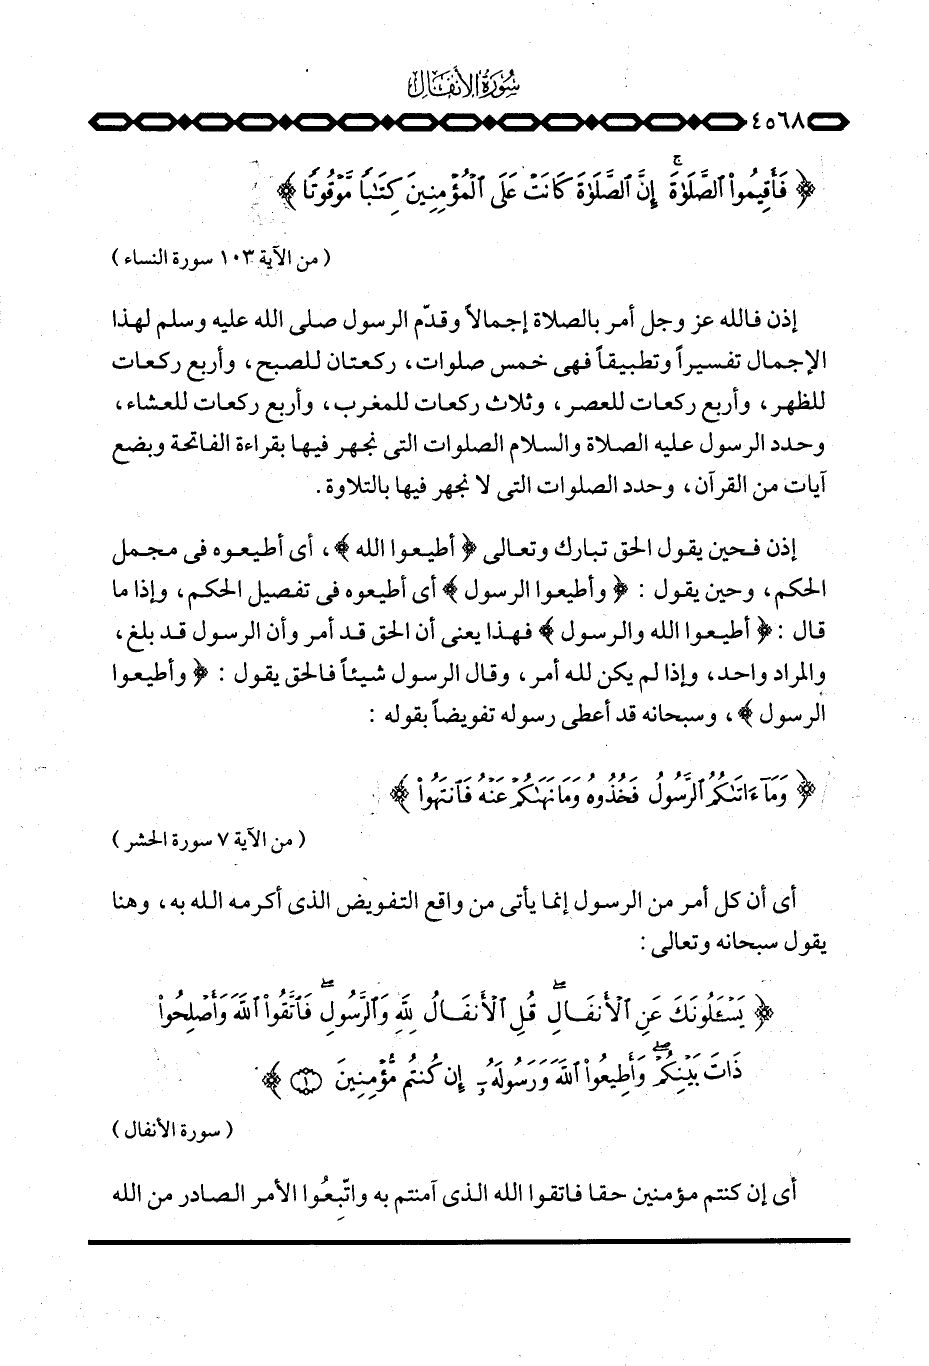 سورة الأنفال
٤٥٦٨
﴿ فَأَقِيمُوا۟ ٱلصَّلَوٰةَ ۚ إِنَّ ٱلصَّلَوٰةَ كَانَتْ عَلَى ٱلْمُؤْمِنِينَ كِتَٰبًا مَّوْقُوتًا ﴾
( من الآية ١٠٣ سورة النساء )
إذن فالله عز وجل أمر بالصلاة إجمالاً وقدّم الرسول صلى الله عليه وسلم لهذا
الإجمال تفسيراً وتطبيقاً فهى خمس صلوات، ركعتان للصبح، وأربع ركعات
للظهر، وأربع ركعات للعصر، وثلاث ركعات للمغرب، وأربع ركعات للعشاء،
وحدد الرسول عليه الصلاة والسلام الصلوات التى نجهر فيها بقراءة الفاتحة وبضع
آيات من القرآن، وحدد الصلوات التى لا نجهر فيها بالتلاوة.
إذن فحين يقول الحق تبارك وتعالى ﴿ أطيعوا الله ﴾، أى أطيعوه فى مجمل
الحكم، وحين يقول : ﴿ وأطيعوا الرسول ﴾ أى أطيعوه فى تفصيل الحكم، وإذا ما
قال : ﴿ أطيعوا الله والرسول ﴾ فهذا يعنى أن الحق قد أمر وأن الرسول قد بلغ،
والمراد واحد، وإذا لم يكن لله أمر، وقال الرسول شيئاً فالحق يقول : ﴿ وأطيعوا
الرسول ﴾، وسبحانه قد أعطى رسوله تفويضاً بقوله :
﴿ وَمَآ ءَاتَىٰكُمُ ٱلرَّسُولُ فَخُذُوهُ وَمَا نَهَىٰكُمْ عَنْهُ فَٱنتَهُوا۟ ﴾
( من الآية ٧ سورة الحشر )
أى أن كل أمر من الرسول إنما يأتى من واقع التفويض الذى أكرمه الله به، وهنا
يقول سبحانه وتعالى :
﴿ يَسْـَٔلُونَكَ عَنِ ٱلْأَنفَالِ ۖ قُلِ ٱلْأَنفَالُ لِلَّهِ وَٱلرَّسُولِ ۖ فَٱتَّقُوا۟ ٱللَّهَ وَأَصْلِحُوا۟
ذَاتَ بَيْنِكُمْ ۖ وَأَطِيعُوا۟ ٱللَّهَ وَرَسُولَهُۥٓ إِن كُنتُم مُّؤْمِنِينَ ١ ﴾
( سورة الأنفال )
أى إن كنتم مؤمنين حقا فاتقوا الله الذى آمنتم به واتّبعُوا الأمر الصادر من الله